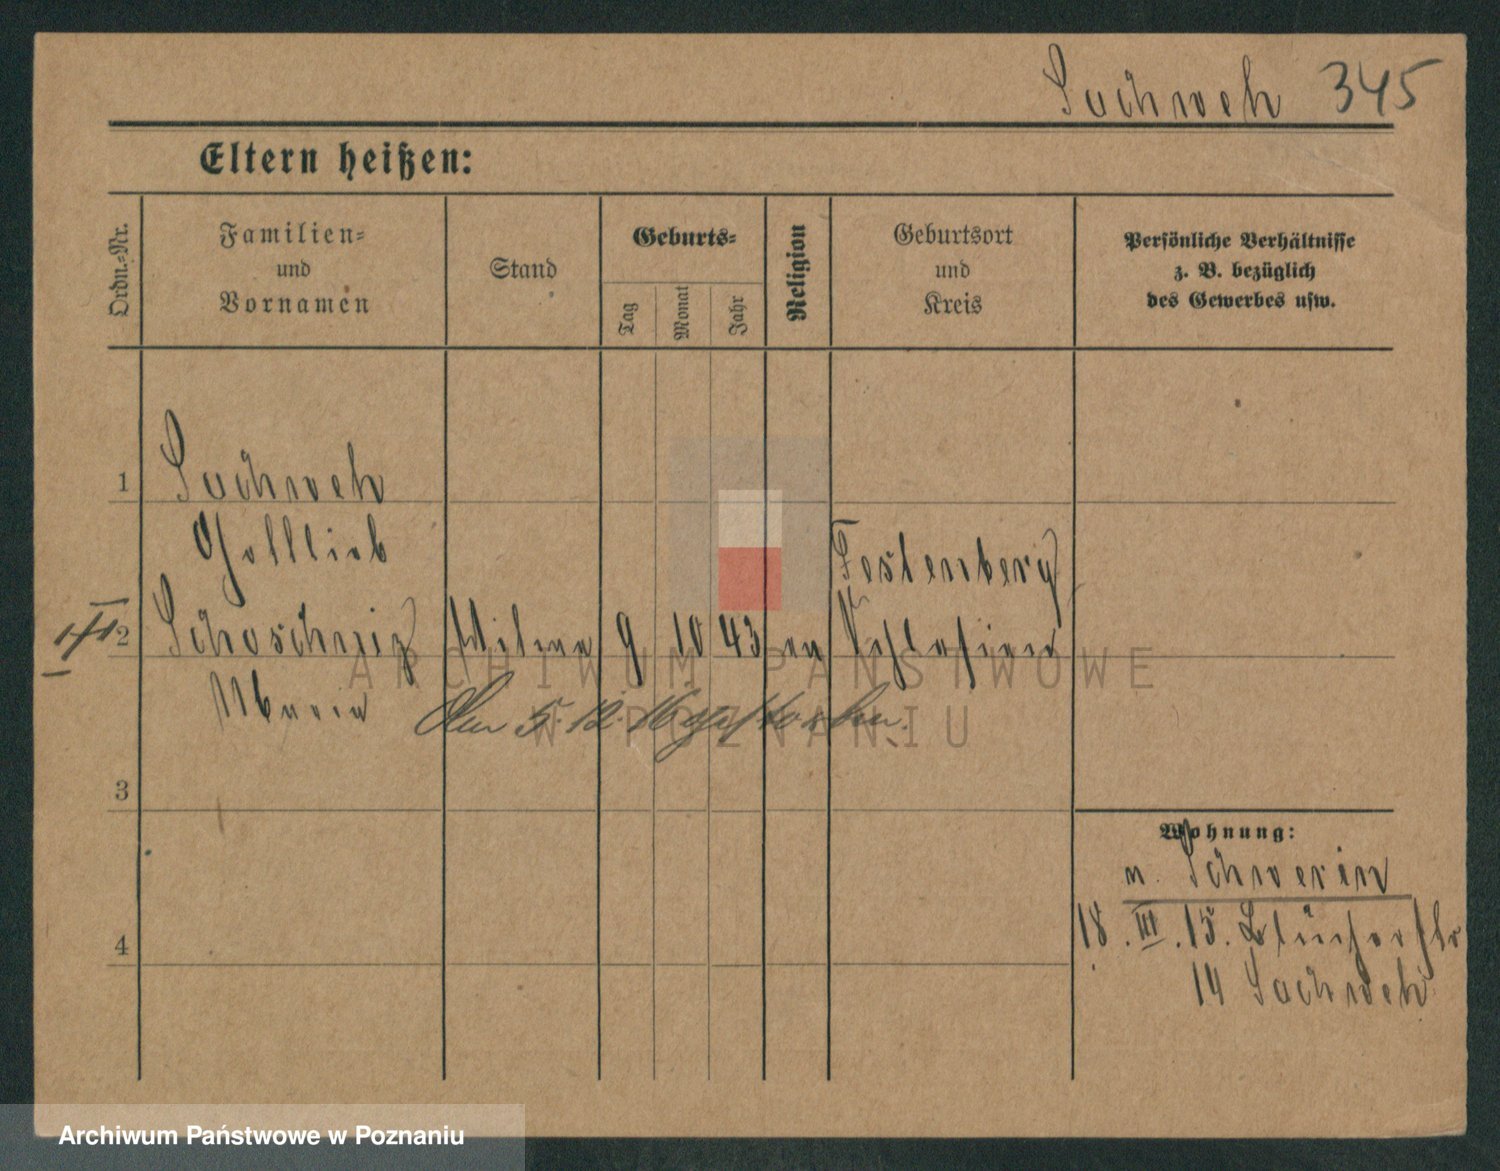 Sachweh 345
Eltern heißen:
Ordn.-Nr.
Familien-
und
Vornamen
Stand
Geburts-
Tag
Monat
Jahr
Religion
Geburtsort
und
Kreis
Persönliche Verhältnisse
z. B. bezüglich
des Gewerbes usw.
1 Sachweh
Gottlieb
2 Schoschnig Witwe 9 10 43 ev Festenberg
Schlesien
Maria
Am 5. 12. 16 gestorben.
3
4
Wohnung:
n. Schwerin
18. III. 15. Blücherstr
14 Sachweh
ARCHIWUM PAŃSTWOWE
W POZNANIU
Archiwum Państwowe w Poznaniu